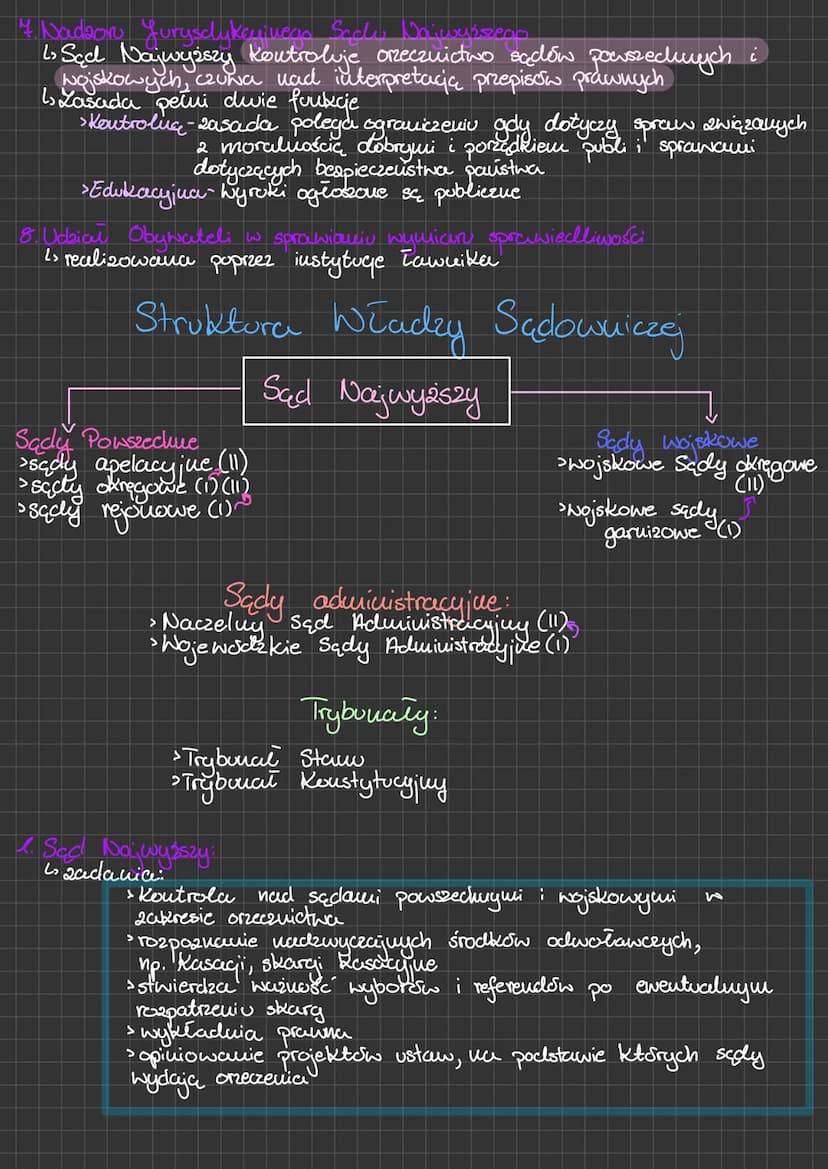 7. Nadzoru Jurysdykcyjnego Sądu Najwyższego
↳ Sąd Najwyższy kontroluje orzecznictwo sądów powszechnych i
wojskowych, czuwa nad interpretacją przepisów prawnych
↳ Zasada pełni dwie funkcje
>Kontrolną - zasada polega ograniczeniu gdy dotyczy spraw związanych
z moralnością dobrymi i porządkiem publi i sprawami
dotyczących bezpieczeństwa państwa
>Edukacyjna - Wyroki ogłoszone są publiczne
8. Udział Obywateli w sprawianiu wymiaru sprawiedliwości
↳ realizowana poprzez instytucję Ławnika
Struktura Władzy Sądowniczej
Sąd Najwyższy
Sądy Powszechne
>sądy apelacyjne (II)
>sądy okręgowe (I) (II)
>sądy rejonowe (I)
Sądy wojskowe
>wojskowe Sądy okręgowe
(II)
>Wojskowe sądy
garnizowe (I)
Sądy administracyjne:
> Naczelny Sąd Administracyjny (II)
>Wojewódzkie Sądy Administracyjne (I)
Trybunały:
>Trybunał Stanu
>Trybunał Konstytucyjny
1. Sąd Najwyższy:
↳ zadania:
> Kontrola nad sądami powszechnymi i wojskowymi w
zakresie orzecznictwa
>rozpoznanie nadzwyczajnych środków odwoławczych,
np. Kasacji, skargi kasacyjne
>stwierdza ważność wyborów i referendów po ewentualnym
rozpatrzeniu skarg
> wykładnia prawna
>opiniowanie projektów ustaw, na podstawie których sądy
wydają orzeczenia